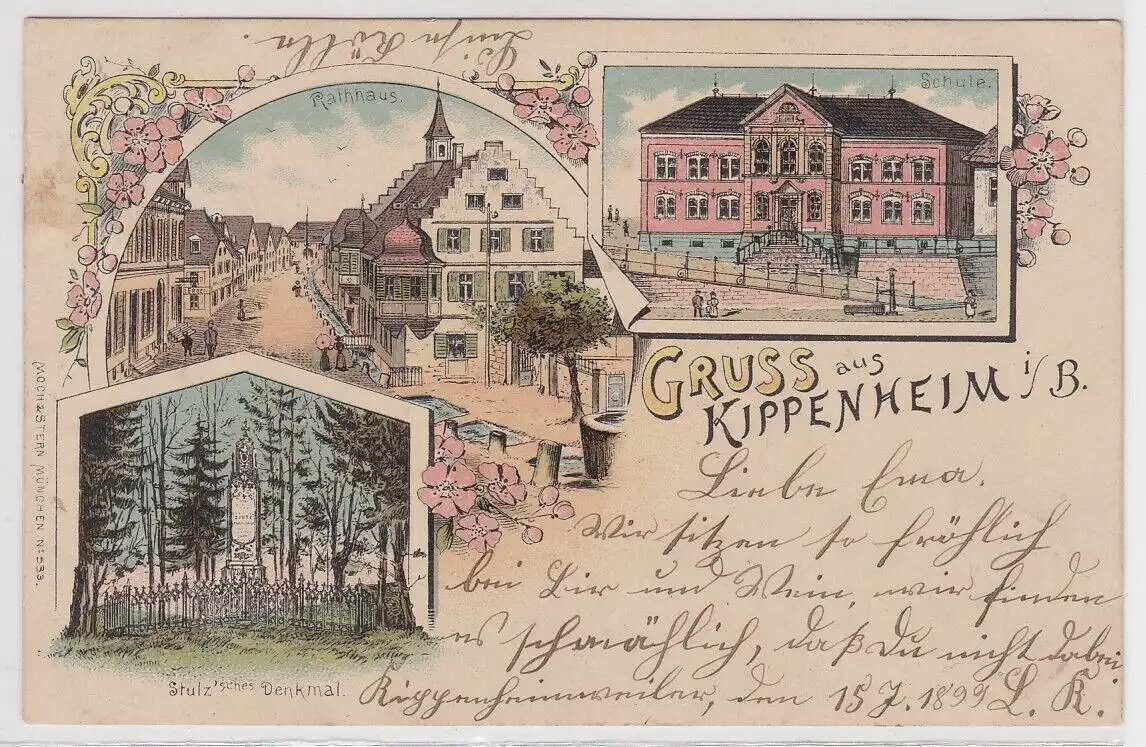 Luise Kölln.
Rathhaus.
Schule.
GRUSS aus
KIPPENHEIM i/B.
Liebe Ema.
Wir sitzen so fröhlich
bei Bir und Wein, wir finden
es schmählich, daß Du nicht dabei
Kippenheimweiler, den 15 J. 1899 L. K.
Stulz'sches Denkmal.
MOCH & STERN MÜNCHEN No. 533.